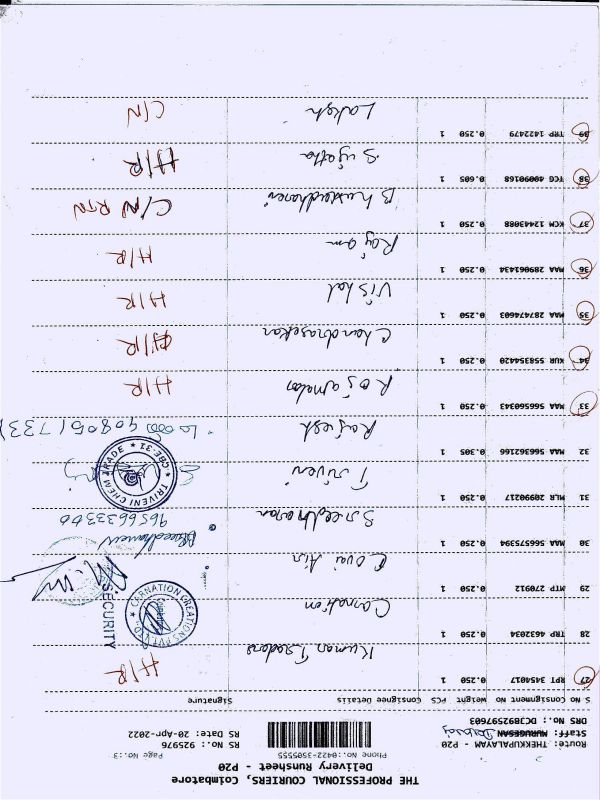 THE PROFESSIONAL COURIERS, Coimbatore
Delivery Runsheet - P20
Phone No.:0422-3505555
Page No.:3
Route: THEKKUPALAYAM - P20
Staff: MURUGESAN
DRS No.: DC3B92597603
RS No.: 925976
RS Date: 20-Apr-2022
S.No Consignment No Weight PCS Consignee Details Signature
27 RPT 3454017 0.250 1 Kumar Traders H/R
28 TRP 4632034 0.250 1 Carnation CARNATION CREATIONS PVT. LTD. SECURITY
29 MTP 270912 0.250 1 Covai Air
30 MAA 566575394 0.250 1 Sreedharan Sreedharan 9656633300
31 MLR 20990217 0.250 1 Triveni TRIVENI CHEM TRADE ★ CBE-31 ★
32 MAA 566362166 0.305 1 Rajesh
33 MAA 566560343 0.250 1 H/R
34 KUR 558354420 0.250 1 Chandrasekar H/R
35 MAA 287474603 0.250 1 Vishal H/R
36 MAA 289061434 0.250 1 Rajam H/R
37 KCM 12443088 0.250 1 C/N RTN
38 TCG 40090168 0.605 1 Sujatha H/R
39 TRP 1422479 0.250 1 Laksh C/N